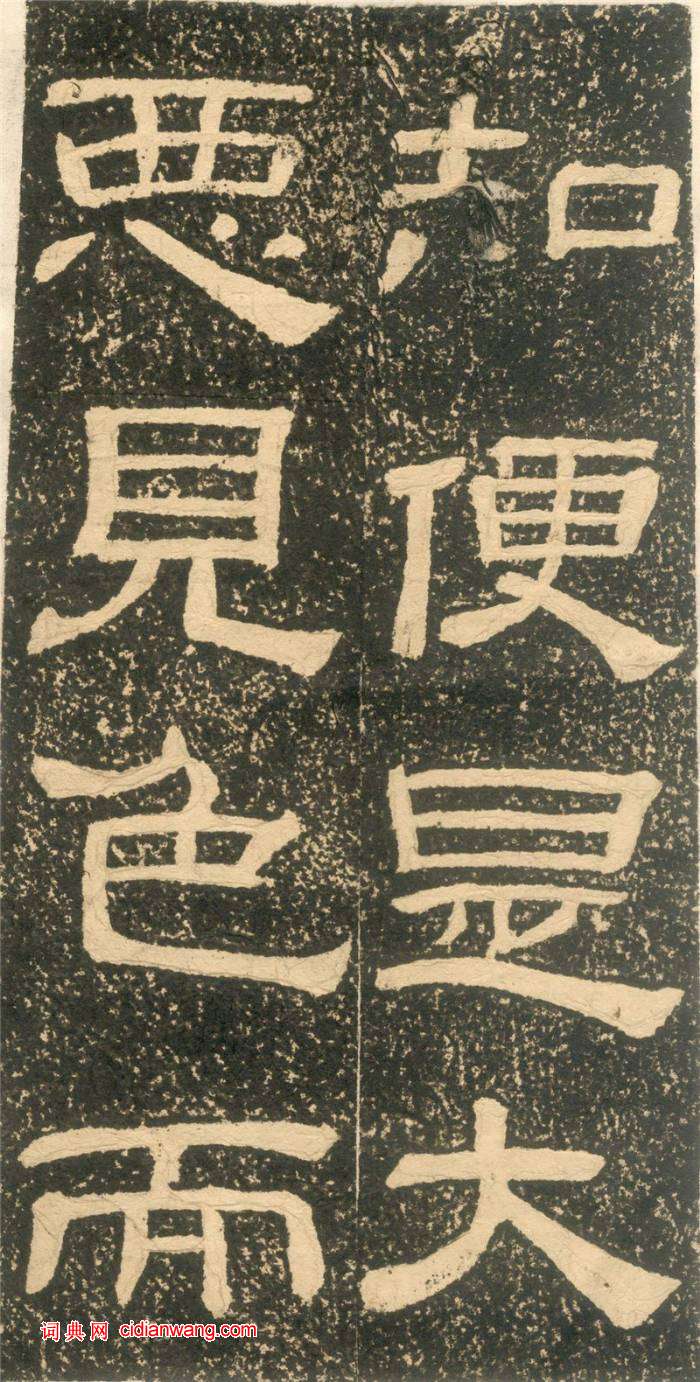 知便是大
惡見色而
词典网 cidianwang.com